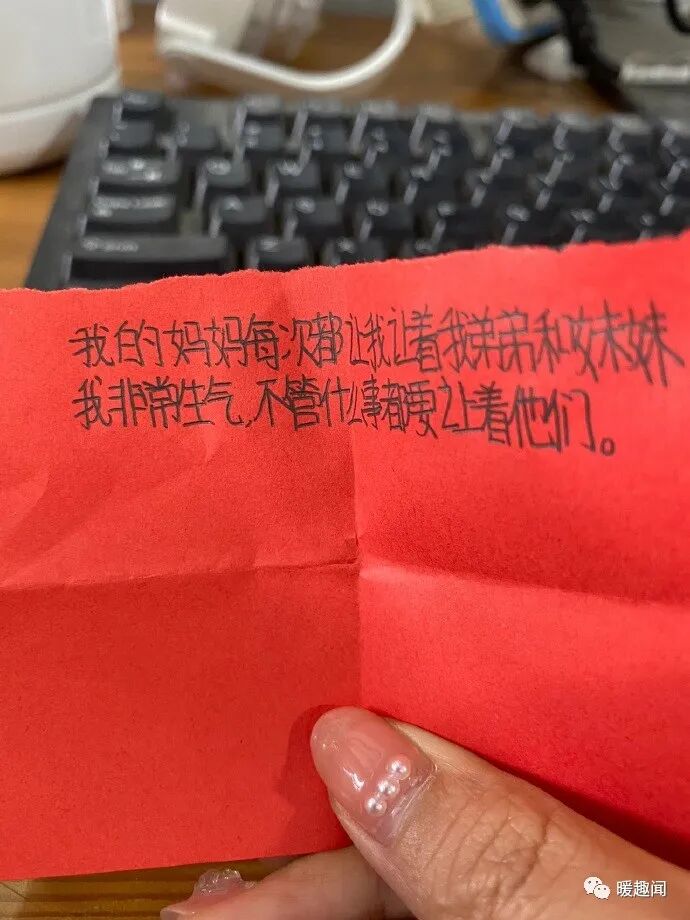 我的妈妈每次都让我让着我弟弟和妹妹
我非常生气,不管什么事都要让着他们。
暖趣闻